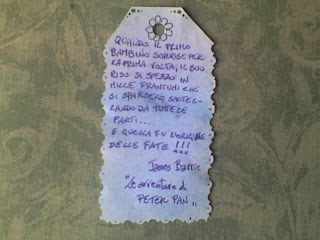 QUANDO IL PRIMO
BAMBINO SORRISE PER
LA PRIMA VOLTA, IL SUO
RISO SI SPEZZÒ IN
MILLE FRANTUMI CHE
SI SPARSERO SALTEL-
LANDO DA TUTTE LE
PARTI...
E QUELLA FU L'ORIGINE
DELLE FATE!!!
James Barrie
"Le avventure di
PETER PAN"